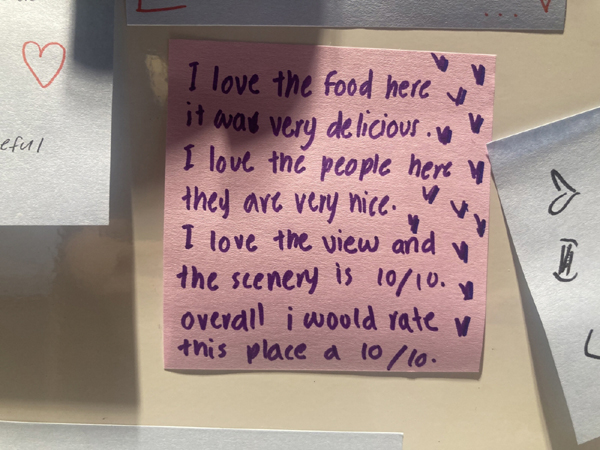 eful
I love the food here
it was very delicious.
I love the people here
they are very nice.
I love the view and
the scenery is 10/10.
overall i would rate
this place a 10/10.